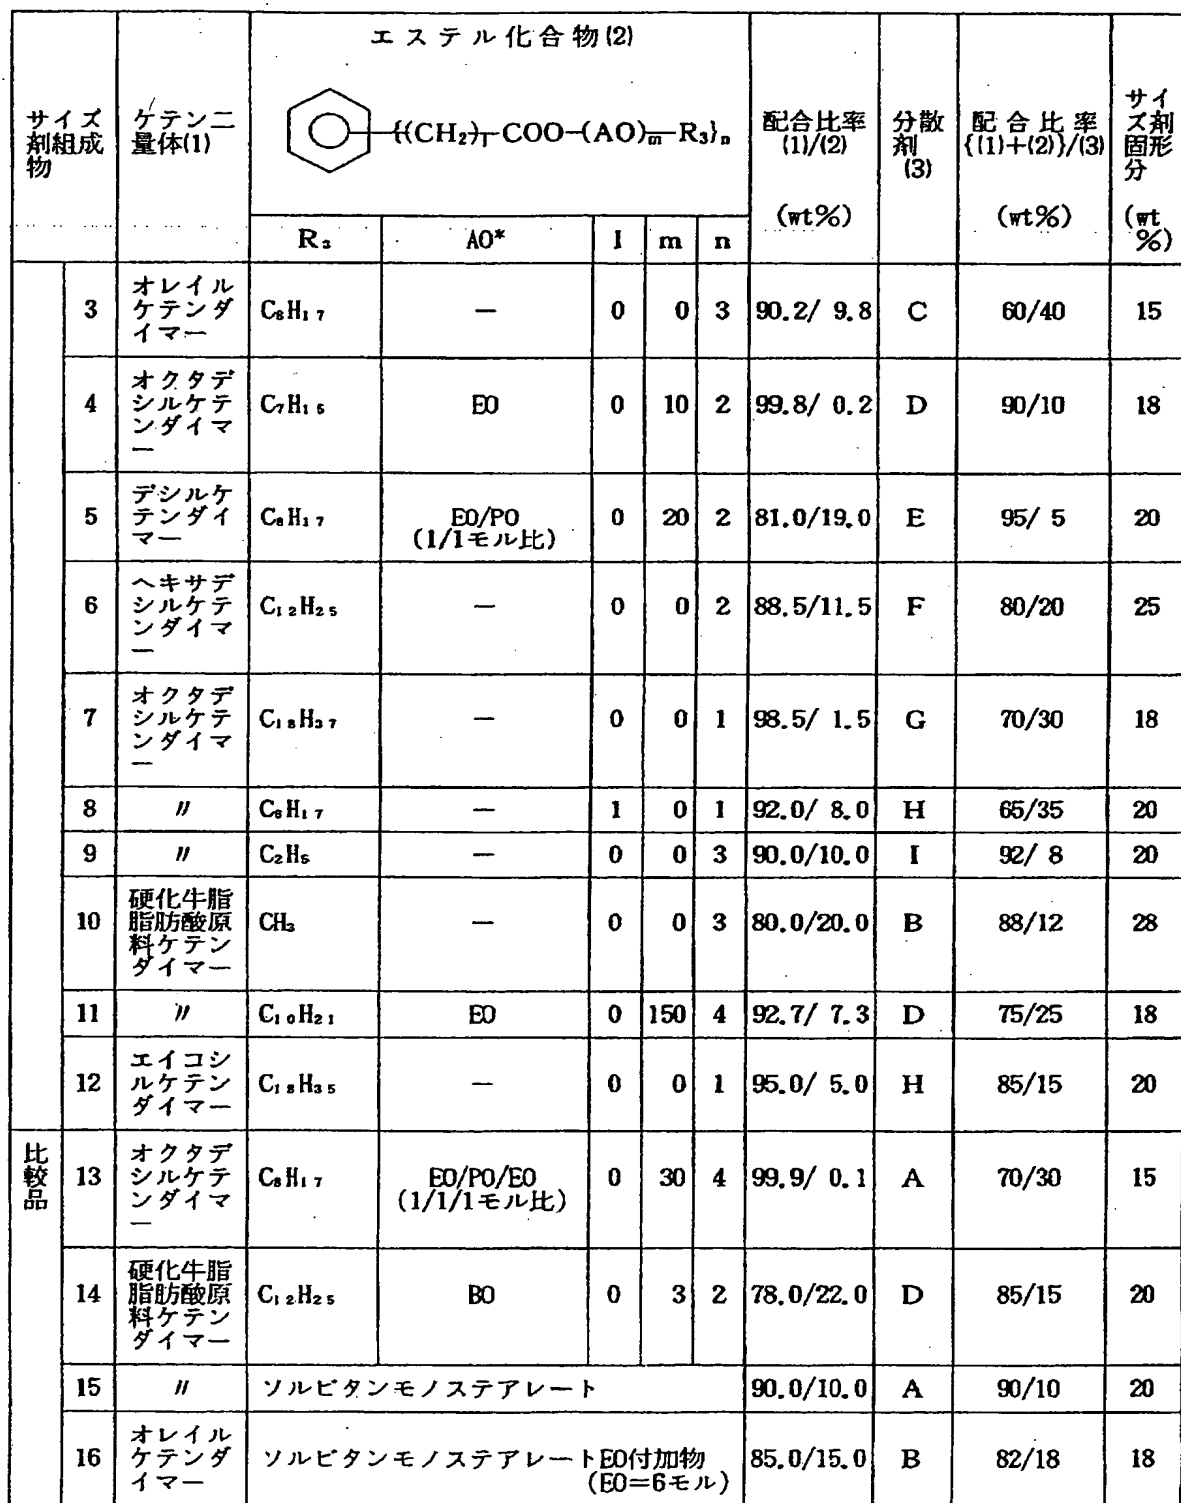 サイズ剤組成物
ケテン二量体(1)
エステル化合物(2)
{(CH₂)l—COO—(AO)m—R₃}n
配合比率 (1)/(2) (wt%)
分散剤 (3)
配合比率 {(1)+(2)}/(3) (wt%)
サイズ剤固形分 (wt%)
R₃ AO* l m n
3 オレイルケテンダイマー C₈H₁₇ — 0 0 3 90.2/ 9.8 C 60/40 15
4 オクタデシルケテンダイマー C₇H₁₅ EO 0 10 2 99.8/ 0.2 D 90/10 18
5 デシルケテンダイマー C₈H₁₇ EO/PO (1/1モル比) 0 20 2 81.0/19.0 E 95/ 5 20
6 ヘキサデシルケテンダイマー C₁₂H₂₅ — 0 0 2 88.5/11.5 F 80/20 25
7 オクタデシルケテンダイマー C₁₈H₃₇ — 0 0 1 98.5/ 1.5 G 70/30 18
8 〃 C₈H₁₇ — 1 0 1 92.0/ 8.0 H 65/35 20
9 〃 C₂H₅ — 0 0 3 90.0/10.0 I 92/ 8 20
10 硬化牛脂脂肪酸原料ケテンダイマー CH₃ — 0 0 3 80.0/20.0 B 88/12 28
11 〃 C₁₀H₂₁ EO 0 150 4 92.7/ 7.3 D 75/25 18
12 エイコシルケテンダイマー C₁₈H₃₅ — 0 0 1 95.0/ 5.0 H 85/15 20
比較品
13 オクタデシルケテンダイマー C₈H₁₇ EO/PO/EO (1/1/1モル比) 0 30 4 99.9/ 0.1 A 70/30 15
14 硬化牛脂脂肪酸原料ケテンダイマー C₁₂H₂₅ BO 0 3 2 78.0/22.0 D 85/15 20
15 〃 ソルビタンモノステアレート 90.0/10.0 A 90/10 20
16 オレイルケテンダイマー ソルビタンモノステアレートEO付加物 (EO=6モル) 85.0/15.0 B 82/18 18